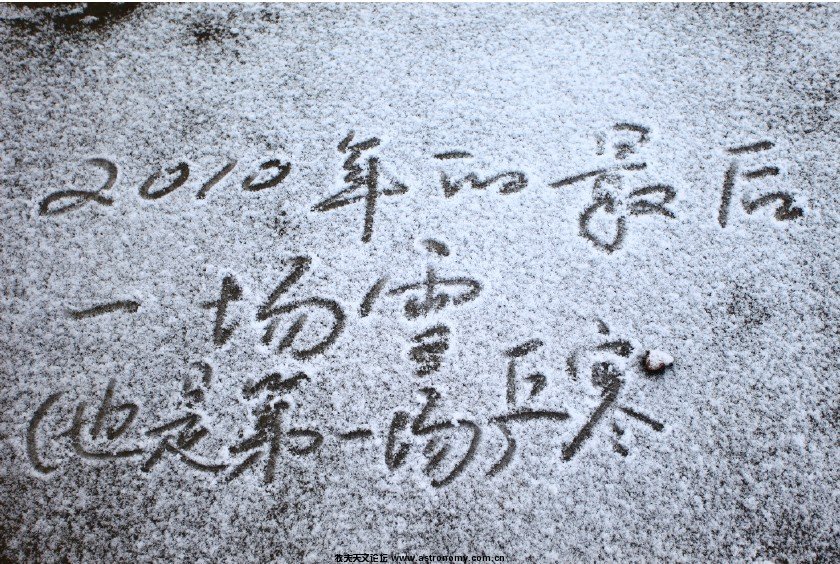 2010年的最后
一场雪
(也是第一场)丘寒
牧夫天文论坛 www.astronomy.com.cn